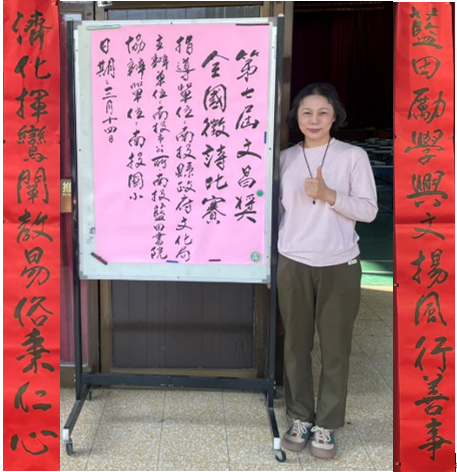 藍田勵學興文揚風行善事
第七屆文昌獎
全國徵詩比賽
指導單位:南投縣政府文化局
主辦單位:南投市公所南投藍田書院
協辦單位:南投國小
日期:三月十四日
推
濟化揮鸞闡教易俗秉仁心